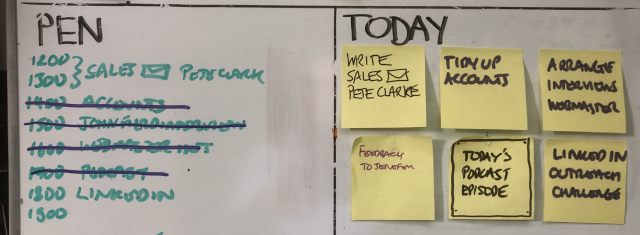 PEN
1200
1300
SALES PETE CLARK
1400 ACCOUNTS
1500
1600
1700 PODCAST
1800 LINKEDIN
1900
TODAY
WRITE
SALES
PETE CLARKE
TIDY UP
ACCOUNTS
ARRANGE
INTERVIEWS
WEBMASTER
FEEDBACK
TO
TODAY'S
PODCAST
EPISODE
LINKED IN
OUTREACH
CHALLENGE